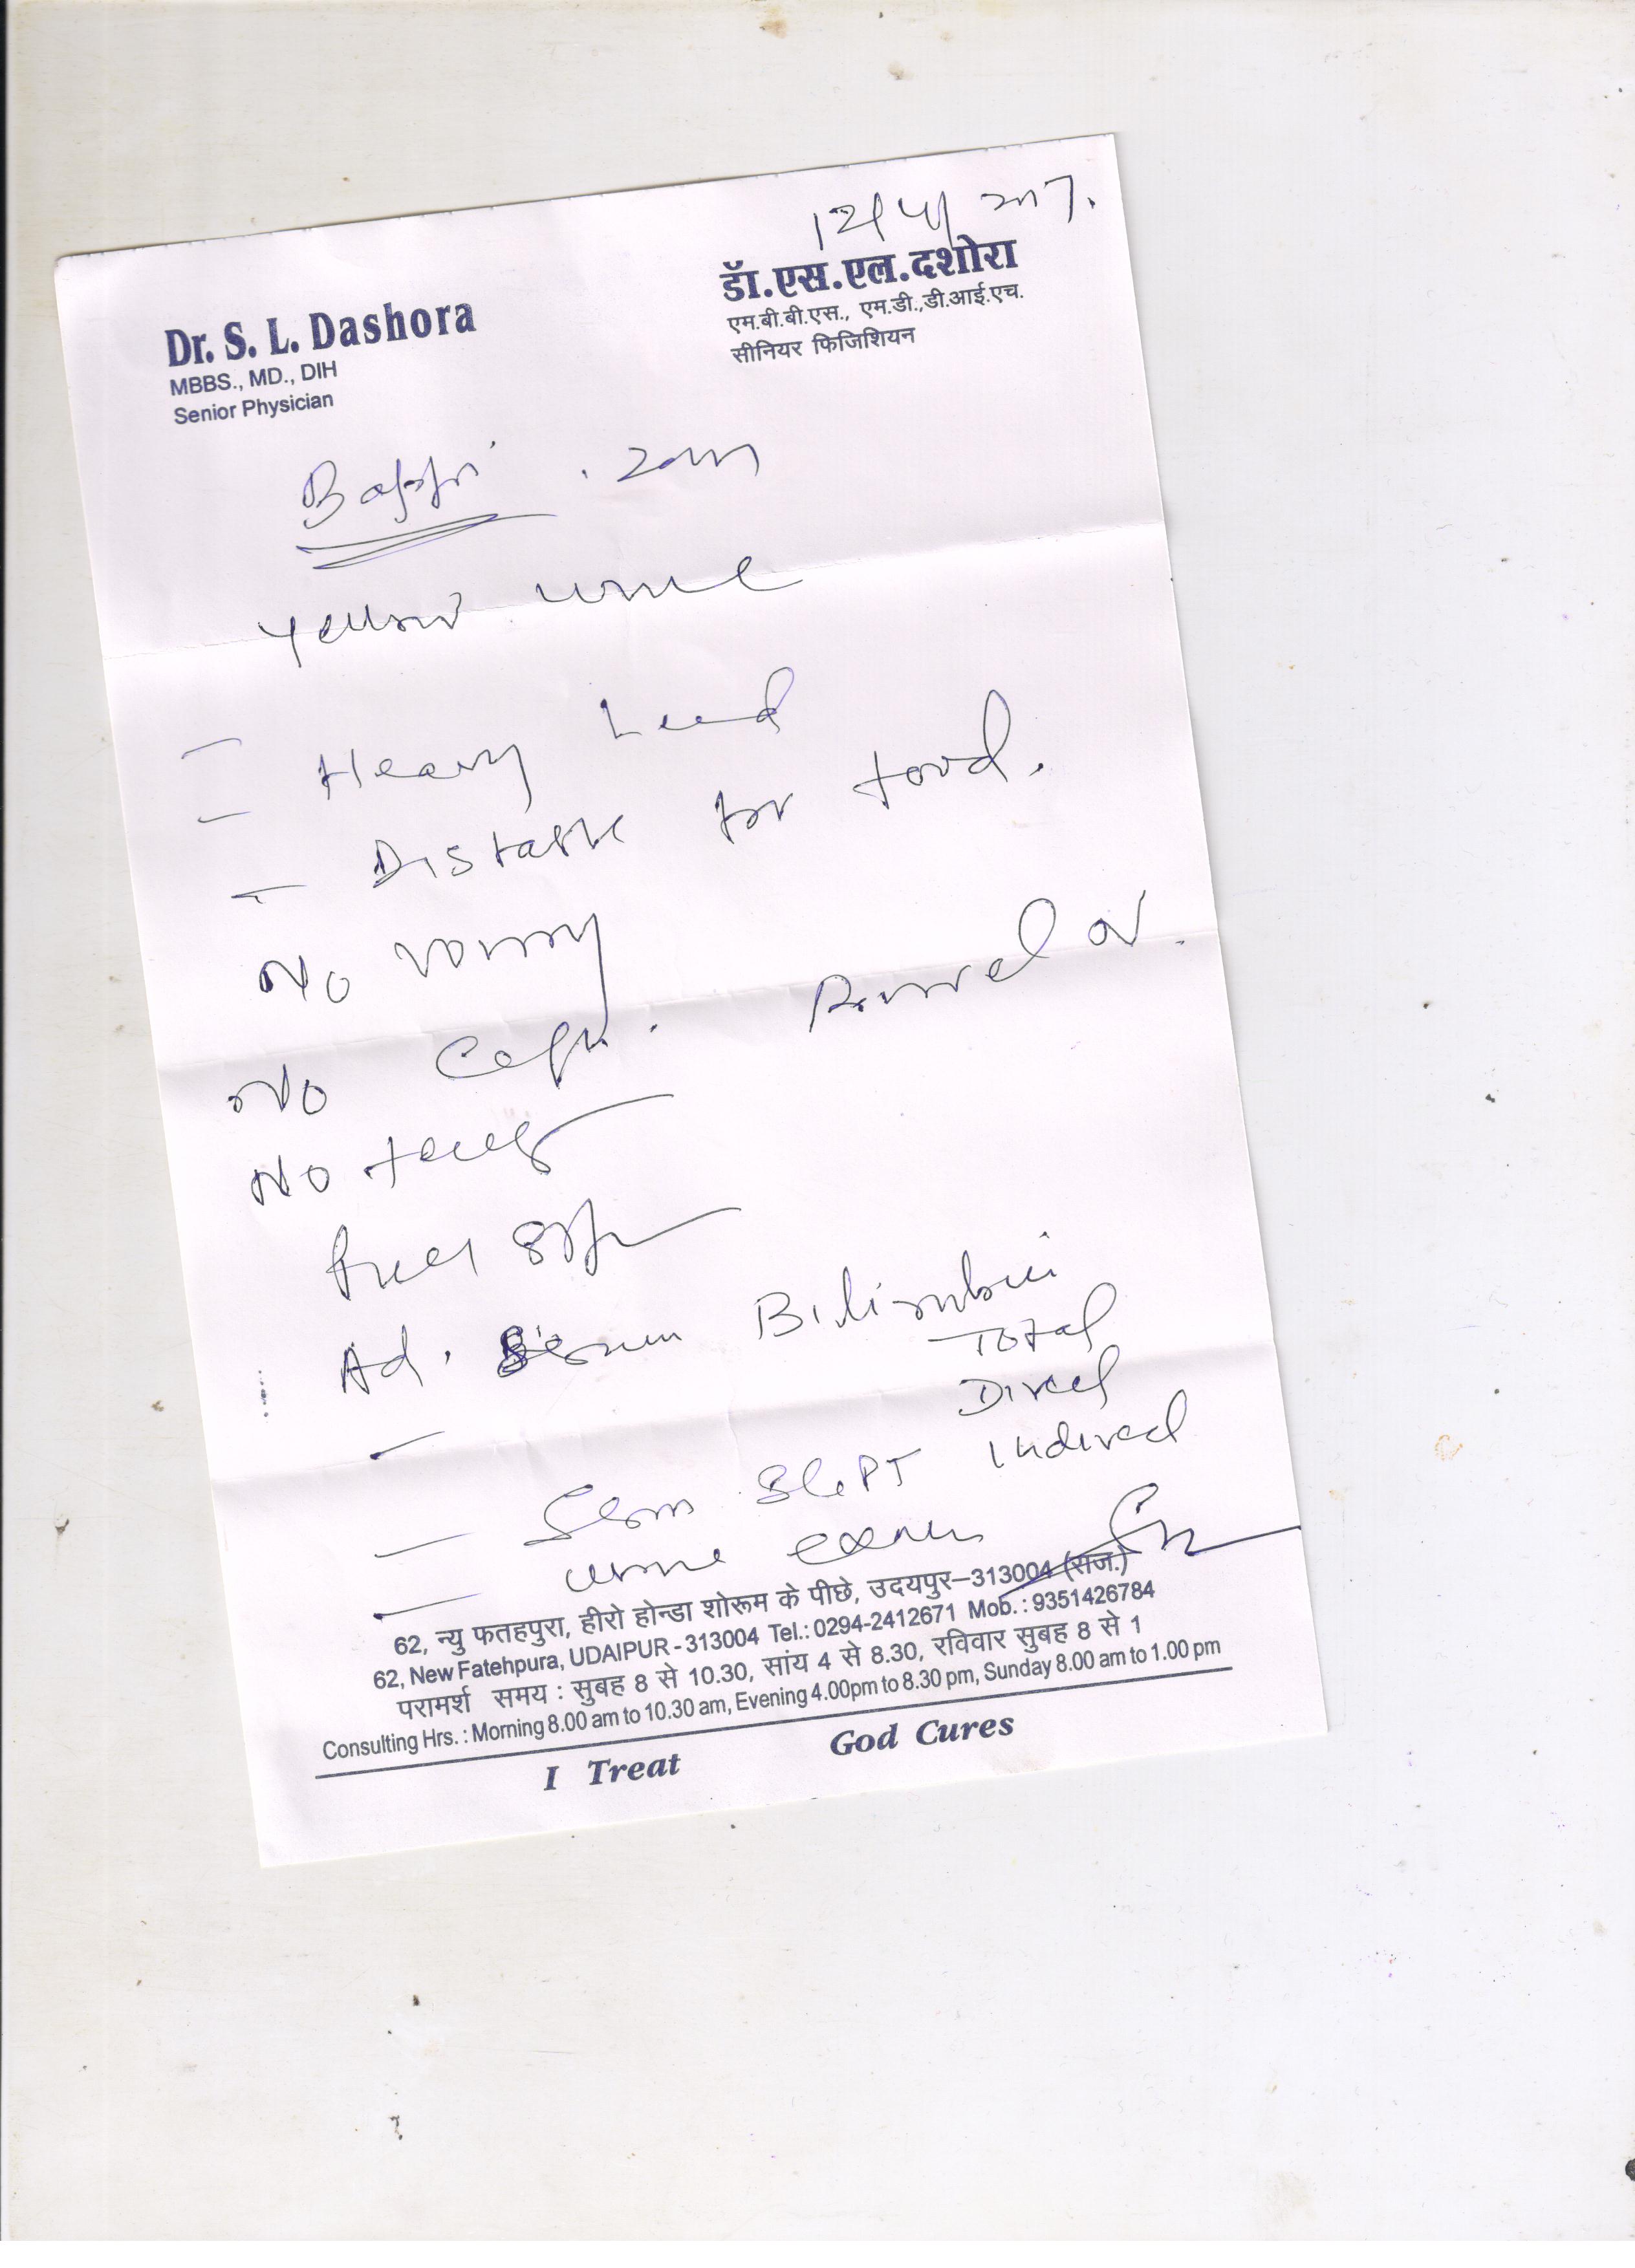 12/4/2017.
Dr. S. L. Dashora
MBBS., MD., DIH
Senior Physician
डॉ.एस.एल.दशोरा
एम.बी.बी.एस., एम.डी.,डी.आई.एच.
सीनियर फिजिशियन
Yellow urine
- Heavy head
- Distaste for food.
No
No
No
Ad. Serum Bilirubin
Total
Direct
Indirect
- Serum SGPT
- urine exam
62, न्यु फतहपुरा, हीरो होन्डा शोरूम के पीछे, उदयपुर–313004 (राज.)
62, New Fatehpura, UDAIPUR - 313004 Tel.: 0294-2412671 Mob.: 9351426784
परामर्श समय : सुबह 8 से 10.30, सांय 4 से 8.30, रविवार सुबह 8 से 1
Consulting Hrs. : Morning 8.00 am to 10.30 am, Evening 4.00pm to 8.30 pm, Sunday 8.00 am to 1.00 pm
I Treat God Cures